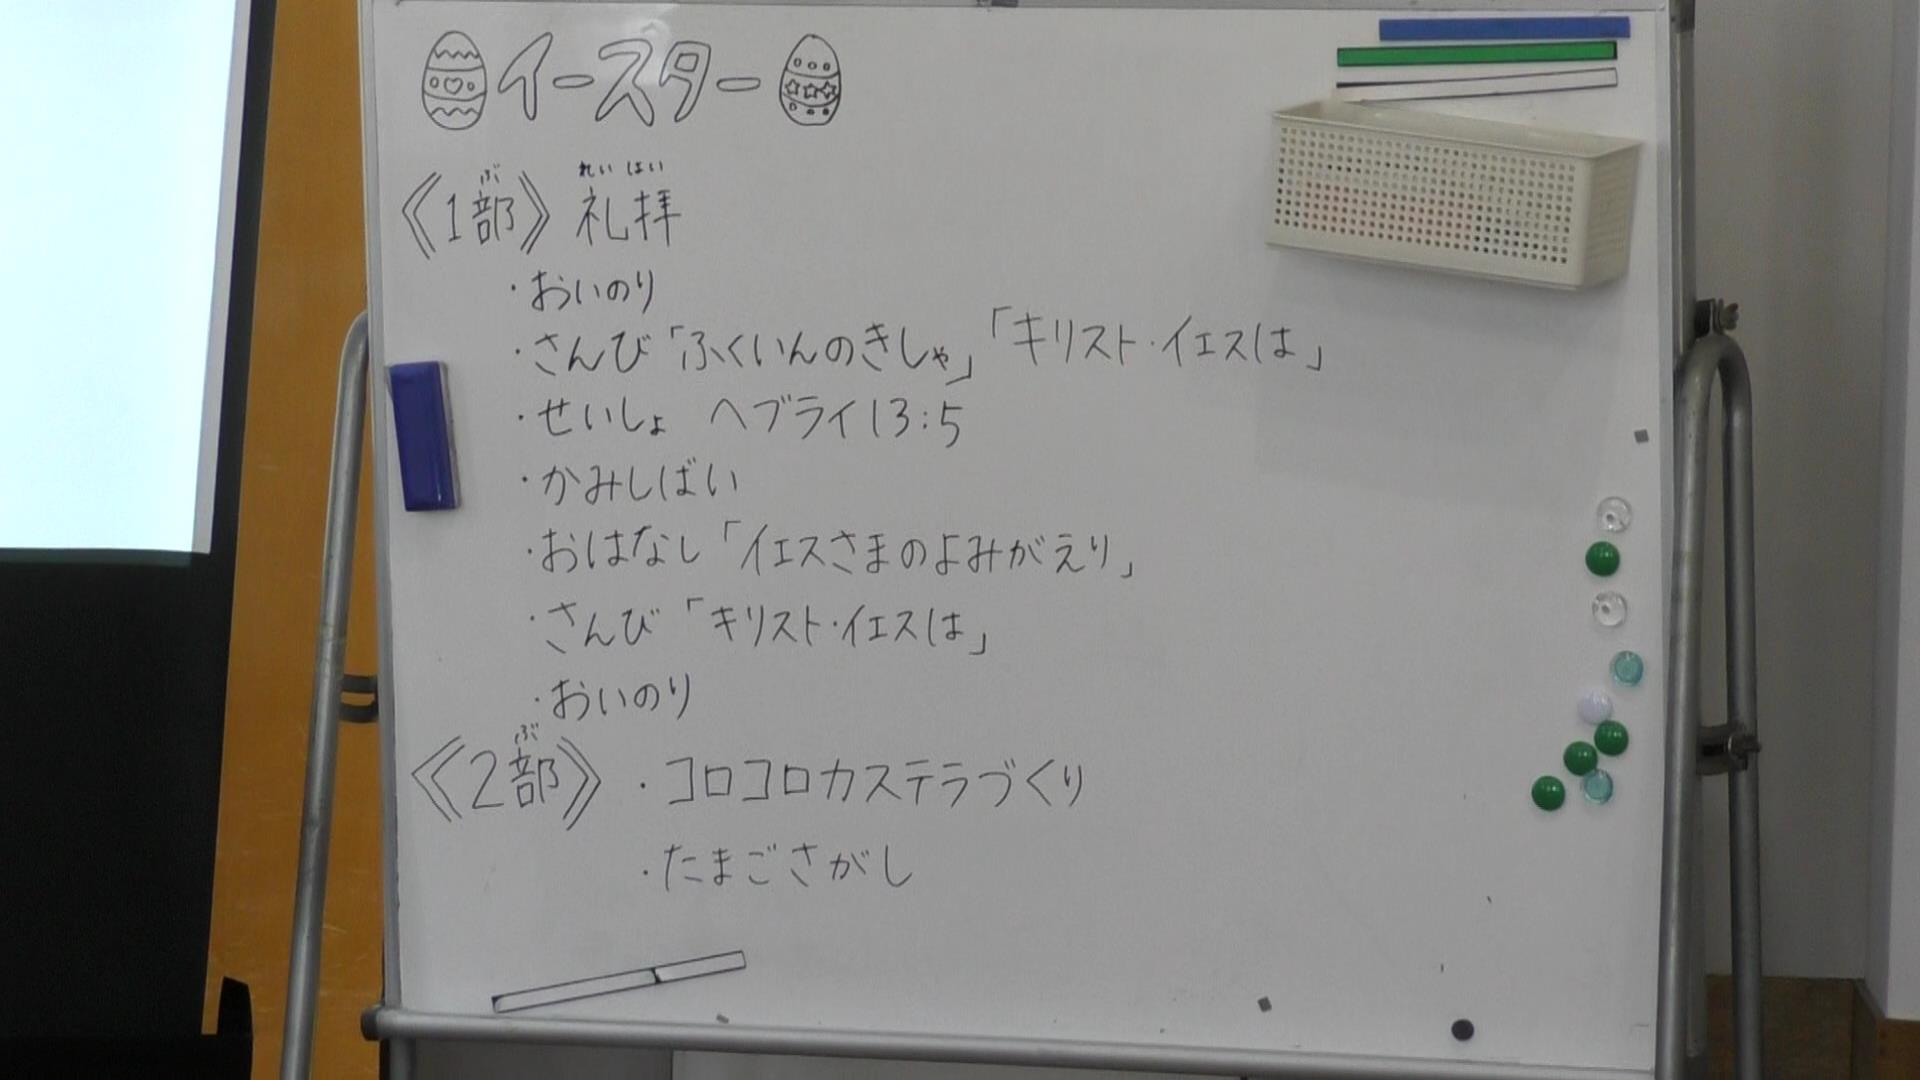 イースター
《1部》 礼拝
ぶ れいはい
・おいのり
・さんび「ふくいんのきしゃ」「キリスト・イエスは」
・せいしょ ヘブライ13:5
・かみしばい
・おはなし「イエスさまのよみがえり」
・さんび「キリスト・イエスは」
・おいのり
ぶ
《2部》 ・コロコロカステラづくり
・たまごさがし